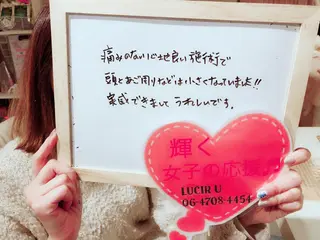 痛みのない心地良い施術で
頭とあご周りなどは小さくなっていました!!
実感できまして うれしいです。
輝く
女子の応援
LUCIR U
06-4708-4454